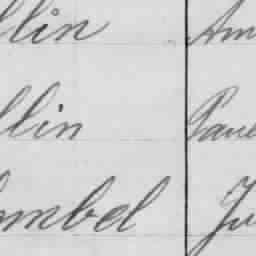 llin Am
llin Paue
mbel Ju